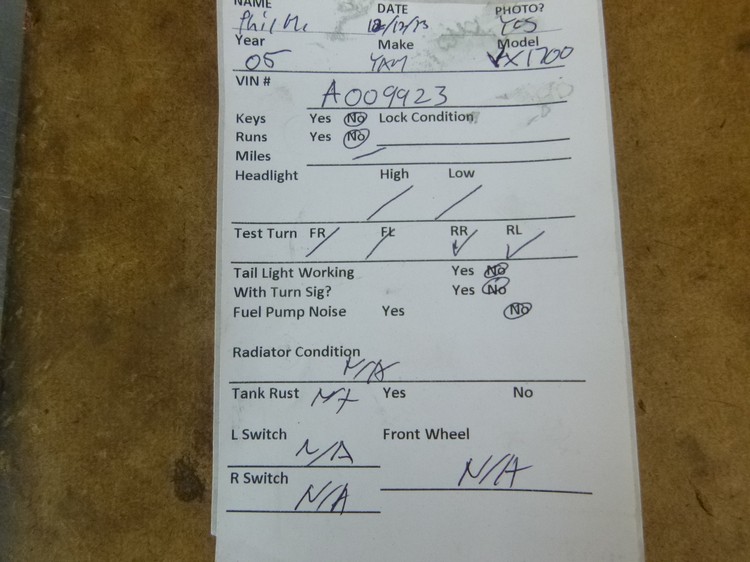 NAME DATE PHOTO?
Phil 12/12/13 YES
Year Make Model
05 YAM VX1700
VIN #
A009923
Keys Yes No Lock Condition
Runs Yes No
Miles
Headlight High Low
Test Turn FR FL RR RL
Tail Light Working Yes No
With Turn Sig? Yes No
Fuel Pump Noise Yes No
Radiator Condition
N/A
Tank Rust N/A Yes No
L Switch Front Wheel
N/A N/A
R Switch
N/A